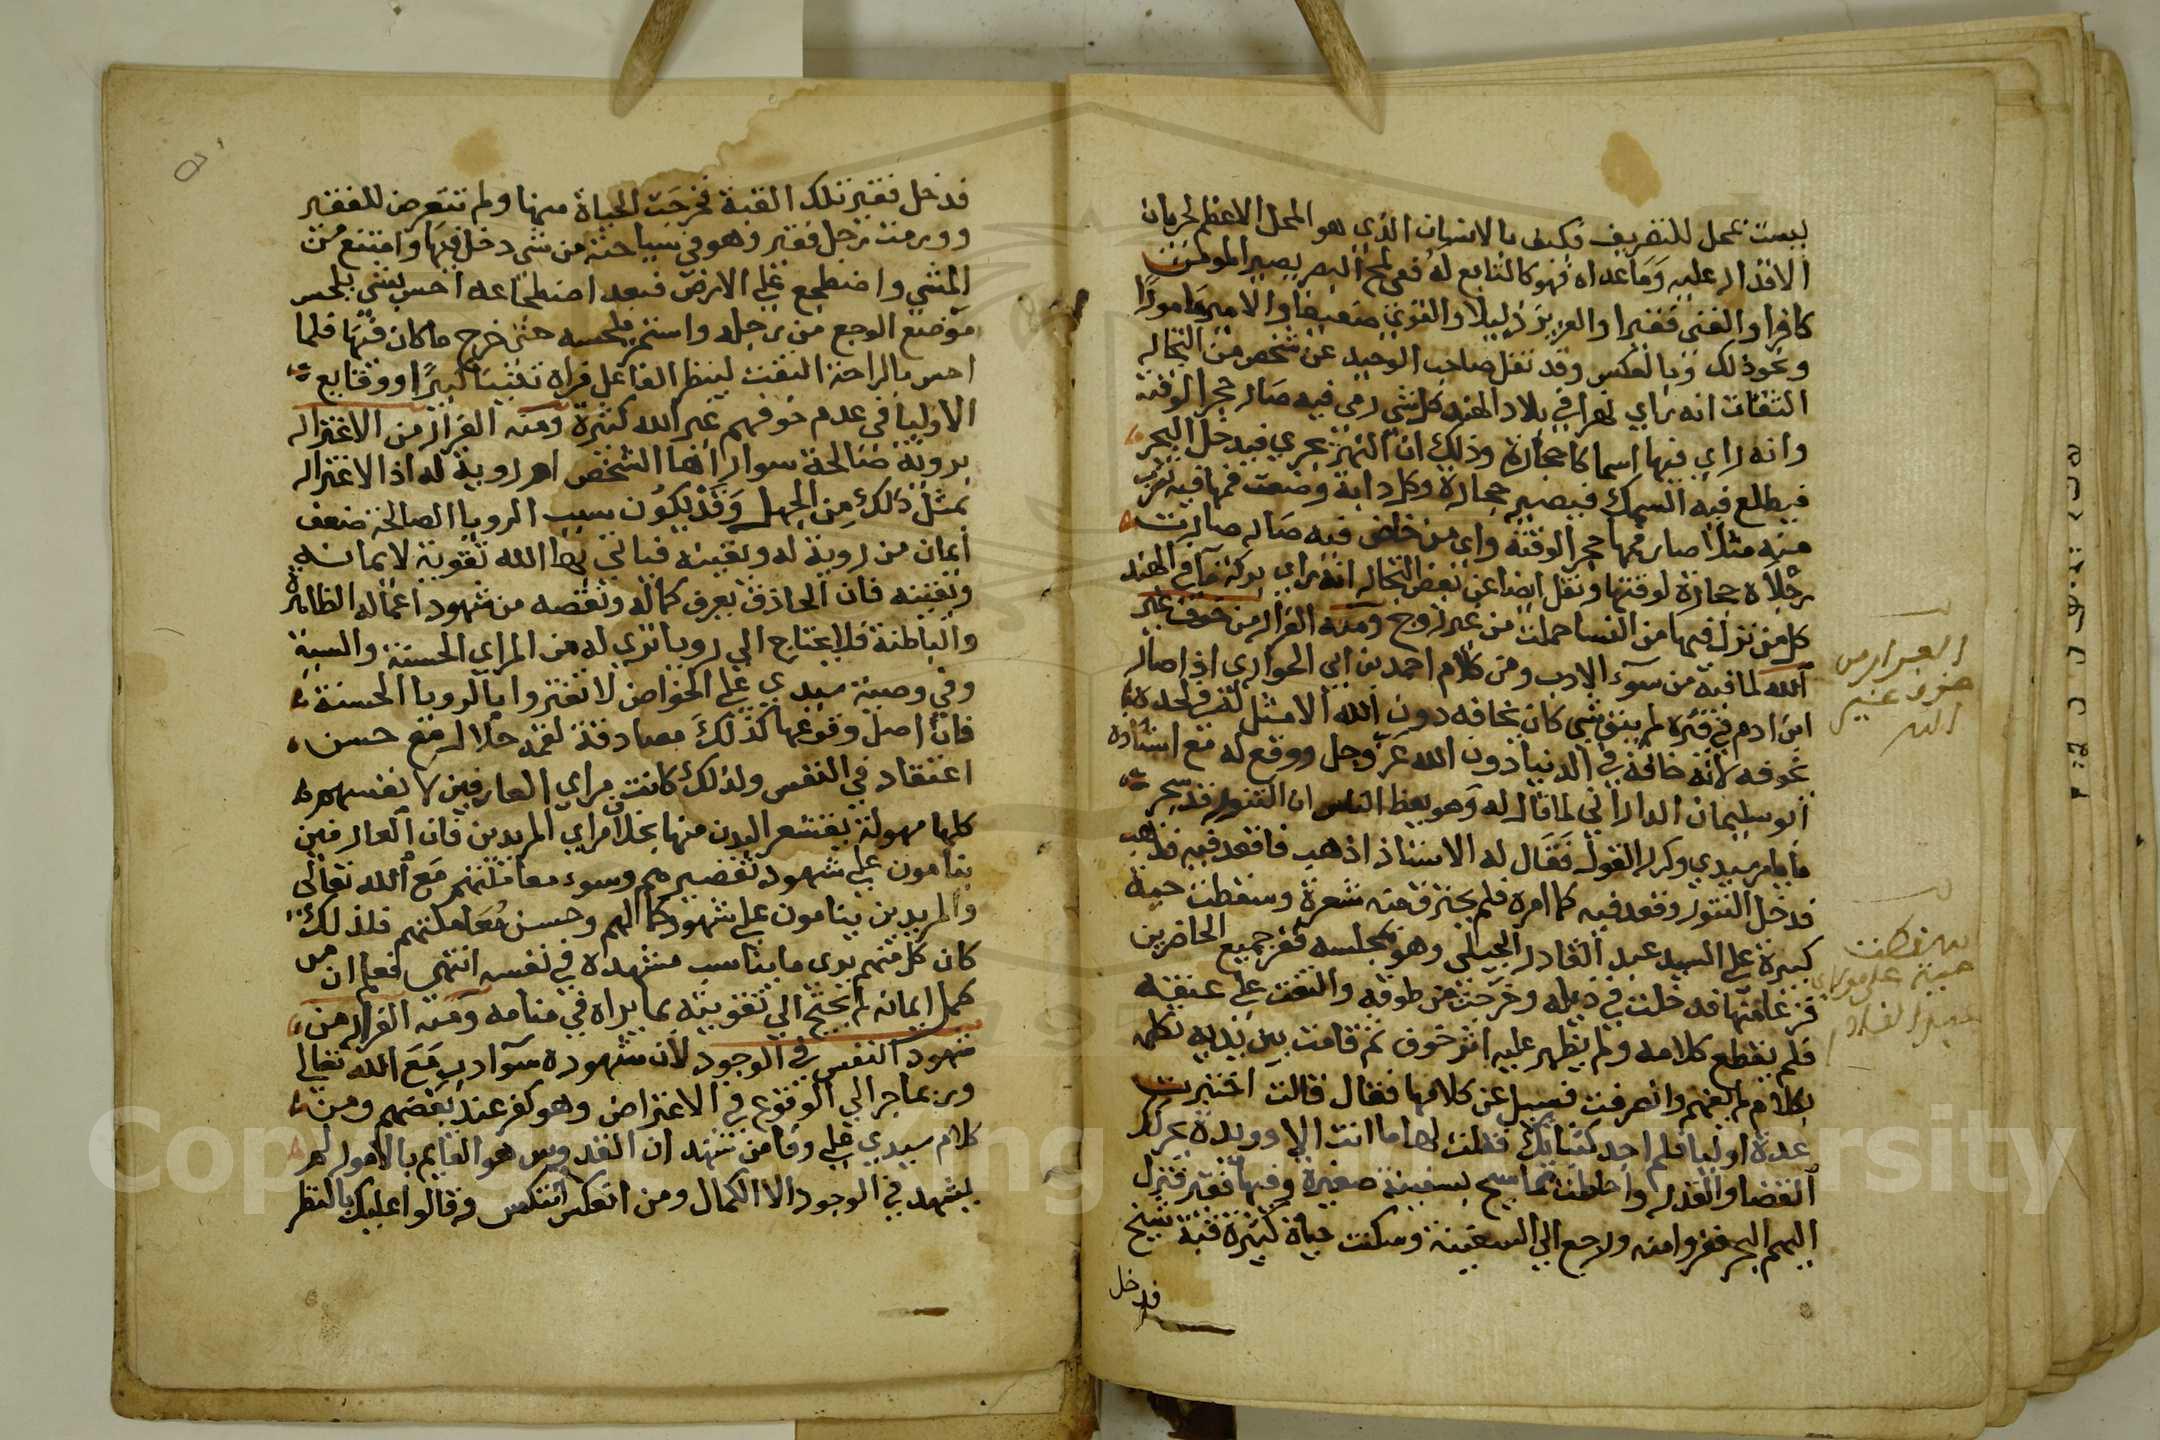 ليست محل للتصريف فكيف بالانسان الذي هو المحل الاعظم لجريان
الاقدار عليه وما عداه فهو كالتابع له ففي لمح البصر يصير المومن
كافرا والغني فقيرا والعزيز ذليلا والقوي ضعيفا والامير مامورا
ونحو ذلك وبالعكس وقد نقل صاحب الوحيد عن شخص من التجار
الثقات انه راي نهرا في بلاد الهند كل شي رمي فيه صار حجرا لوقته
وانه راي فيها اسماكا حجارة وذلك ان النهر يجري فيدخل البحر
فيطلع فيه السمك فيصير حجارة وكل دابة وضعت فمها فيه تشرب
منه مثلا صار فمها حجرا لوقته واي من خاض فيه صار صارت
رجلاه حجارة لوقتها ونقل ايضا عن بعض التجار انه راي بركة ما في الهند
كل من نزل فيها من النسا حملت من غير زوج ومنه الفرار من خوف غير
الله لما فيه من سوء الادب ومن كلام احمد بن ابي الحواري اذا صار
ابن ادم في قبره لم يبق شي كان يخافه دون الله الا مثل له في لحده
يخوفه لانه خافه في الدنيا دون الله عز وجل ووقع له مع استاذه
ابو سليمان الداراني لما قال له وهو يعظ الناس ان التنور قد سجر
ما يامر سيدي وكرر القول فقال له الاستاذ اذهب فاقعد فيه فذهب
فدخل التنور وقعد فيه كما امره فلم يحترق منه شعرة وسقطت حية
كبيرة علي السيد عبد القادر الجيلي وهو بمجلسه ففر جميع الحاضرين
فزعا منها فدخلت في ذيله وخرجت من طوقه والتفت علي عنقه
فلم يقطع كلامه ولم يظهر عليه اثر خوف ثم قامت بين يديه تكلمه
بكلام لم يفهم وانصرفت فسيل عن كلامها فقال قالت اختبرت
عدة اوليا فلم اجد كثباتك فقلت لها ما انت الا دويدة يحركك
القضا والقدر واحاطت تماسيح بسفينة صغيرة وفيها فقير فنزل
اليهم البحر ففروا منه ورجع الي السفينة وسكنت حياة كثيرة قبة شيخ
فدخل
الفرار من
خوف غير
الله
سقطت
حية علي مولاي
عبد القادر
فدخل فقير تلك القبة فخرجت الحياة منها ولم تتعرض للفقير
وورمت رجل فقير وهو في سياحته من شي دخل فيها وامتنع من
المشي واضطجع علي الارض فبعد اضطجاعه احس بشي يلحس
موضع الوجع من رجله واستمر يلحسه حتى خرج ما كان فيها فلما
احس بالراحة التفت لينظر الفاعل فراه ثعبنا كبيرا ووقايع
الاوليا في عدم خوفهم غير الله كثيرة ومنه الفرار من الاغترار
برويه صالحة سوا راها الشخص او رويت له اذ الاغترار
بمثل ذلك من الجهل وقد يكون سبب الرويا الصالحة ضعف
ايمان من رويت له ويقينه فياتي بها الله تقوية لايمانه
ويقينه فان الحاذق يعرف كماله ونقصه من شهود اعماله الظاهرة
والباطنة فلا يحتاج الي رويا تري له من المراي الحسنة والسية
وفي وصية سيدي علي الخواص لا تغتروا بالرويا الحسنة
فان اصل وقوعها كذلك مصادفة لقمة حلال مع حسن
اعتقاد في النفس ولذلك كانت مراي العارفين لانفسهم
كلها مهولة يقشعر البدن منها بخلاف مراي المريدين فان العارفين
ينامون علي شهود تقصيرهم وسوء معاملتهم مع الله تعالى
والمريدين ينامون علي شهود كمالهم وحسن معاملتهم فلذلك
كان كل منهم يري ما يناسب مشهده في نفسه انتهي فعلم ان من
كمل ايمانه لم يحتج الي تقويته بما يراه في منامه ومنه الفرار من
شهود النفس في الوجود لان شهوده سوء ادب مع الله تعالي
وربما جر الي الوقوع في الاعتراض وهو كفر عند بعضهم ومن
كلام سيدي علي وفا من شهد ان القدوس هو القايم بالامور لم
يشهد في الوجود الا الكمال ومن انعكس انتكس وقالوا عليك بالنظر